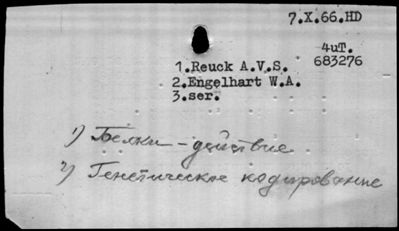 7.X.66.HD
4иТ.
683276
1.Reuck A.V.S.
2.Engelhart W.A.
3.ser.
1) Белки - действие
2) Генетическое кодирование